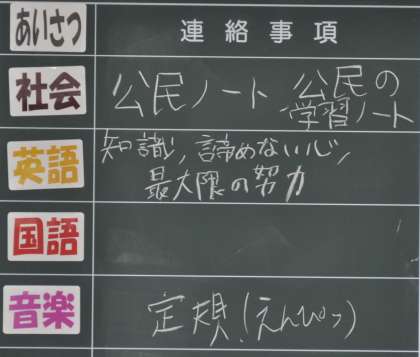 あいさつ 連絡事項
社会 公民ノート 公民の
学習ノート
英語 知識,諦めない心,
最大限の努力
国語
音楽 定規!(えんぴつ)